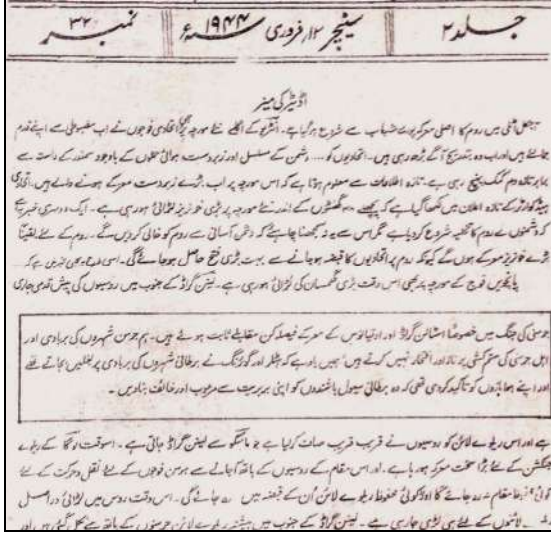 جلد ۲ سنیچر ۱۲ فروری ۱۹۴۴ء نمبر ۳۲
اڈیٹر کی میز
اٹلی میں روم کا اصلی معرکہ پورے شباب سے شروع ہوگیا ہے۔ انزیو کے اگلے نئے مورچہ پر اتحادی فوجوں نے اب مضبوطی سے اپنے قدم
جمالئے ہیں اور اب وہ بتدریج آگے بڑھ رہی ہیں۔ اتحادیوں کو دشمن کے مسلسل اور زبردست ہوائی حملوں کے باوجود سمندر کے راستہ سے
برابر تازہ دم کمک پہنچ رہی ہے۔ تازہ اطلاعات سے معلوم ہوتا ہے کہ اس مورچہ پر اب بڑے زبردست معرکے ہونے والے ہیں۔ اتحادی
ہیڈکوارٹر کے تازہ اعلان میں لکھا گیا ہے کہ پچھلے گھنٹوں کے اندر نئے مورچہ پر بڑی خونریز لڑائی ہورہی ہے۔ ایک دوسری خبر یہ ہے
کہ دشمنوں نے روم کا تخلیہ شروع کردیا ہے مگر اس سے یہ نہ سمجھنا چاہئے کہ دشمن آسانی سے روم کو خالی کردیں گے۔ روم کے لئے یقیناً
بڑے خونریز معرکے ہوں گے کیونکہ روم پر اتحادیوں کا قبضہ ہوجانے سے بہت بڑی فتح حاصل ہوجائے گی۔ اسی طرح یہ بھی خبر ہے کہ
پانچویں فوج کے مورچہ پر بھی اس وقت بڑی گھمسان کی لڑائی ہورہی ہے۔ لینن گراڈ کے جنوب میں روسیوں کی پیش قدمی جاری
جرمنی کی جنگ میں خصوصاً اسٹالن گراڈ اور کے معرکے فیصلہ کن مقابلے ثابت ہوئے ہیں۔ ہم جرمن شہروں کی بربادی اور
اہل جرمنی کی ستم کشی پر ناز اور افتخار نہیں کرتے ہیں ہمیں یاد ہے کہ ہٹلر اور گوئرنگ نے برطانی شہروں کی بربادی پر بغلیں بجائے تھے
اور اپنے ہوا بازوں کو تاکید کردی تھی کہ وہ برطانی سیول باشندوں کو اپنی بربریت سے مرعوب اور خائف بنادیں۔
ہے اور اس ریلوے لائن کو روسیوں نے قریب قریب صاف کرلیا ہے جو ماسکو سے لینن گراڈ جاتی ہے۔ اسوقت لوگا کے ریلوے
جنکشن کے لئے بڑا سخت معرکہ ہورہا ہے۔ اور اس مقام کے روسیوں کے ہاتھ آجانے سے جرمن فوجوں کے لئے نقل و حرکت کے لئے
کوئی مقام نہ رہ جائے گا اور کوئی محفوظ ریلوے لائن اُن کے قبضہ میں نہ رہ جائے گی۔ اس وقت روس میں لڑائی دراصل
لائنوں کے لئے ہی لڑی جارہی ہے۔ لینن گراڈ کے جنوب میں بیشتر ریلوے لائن جرمنوں کے ہاتھ سے نکل گئی ہیں اور